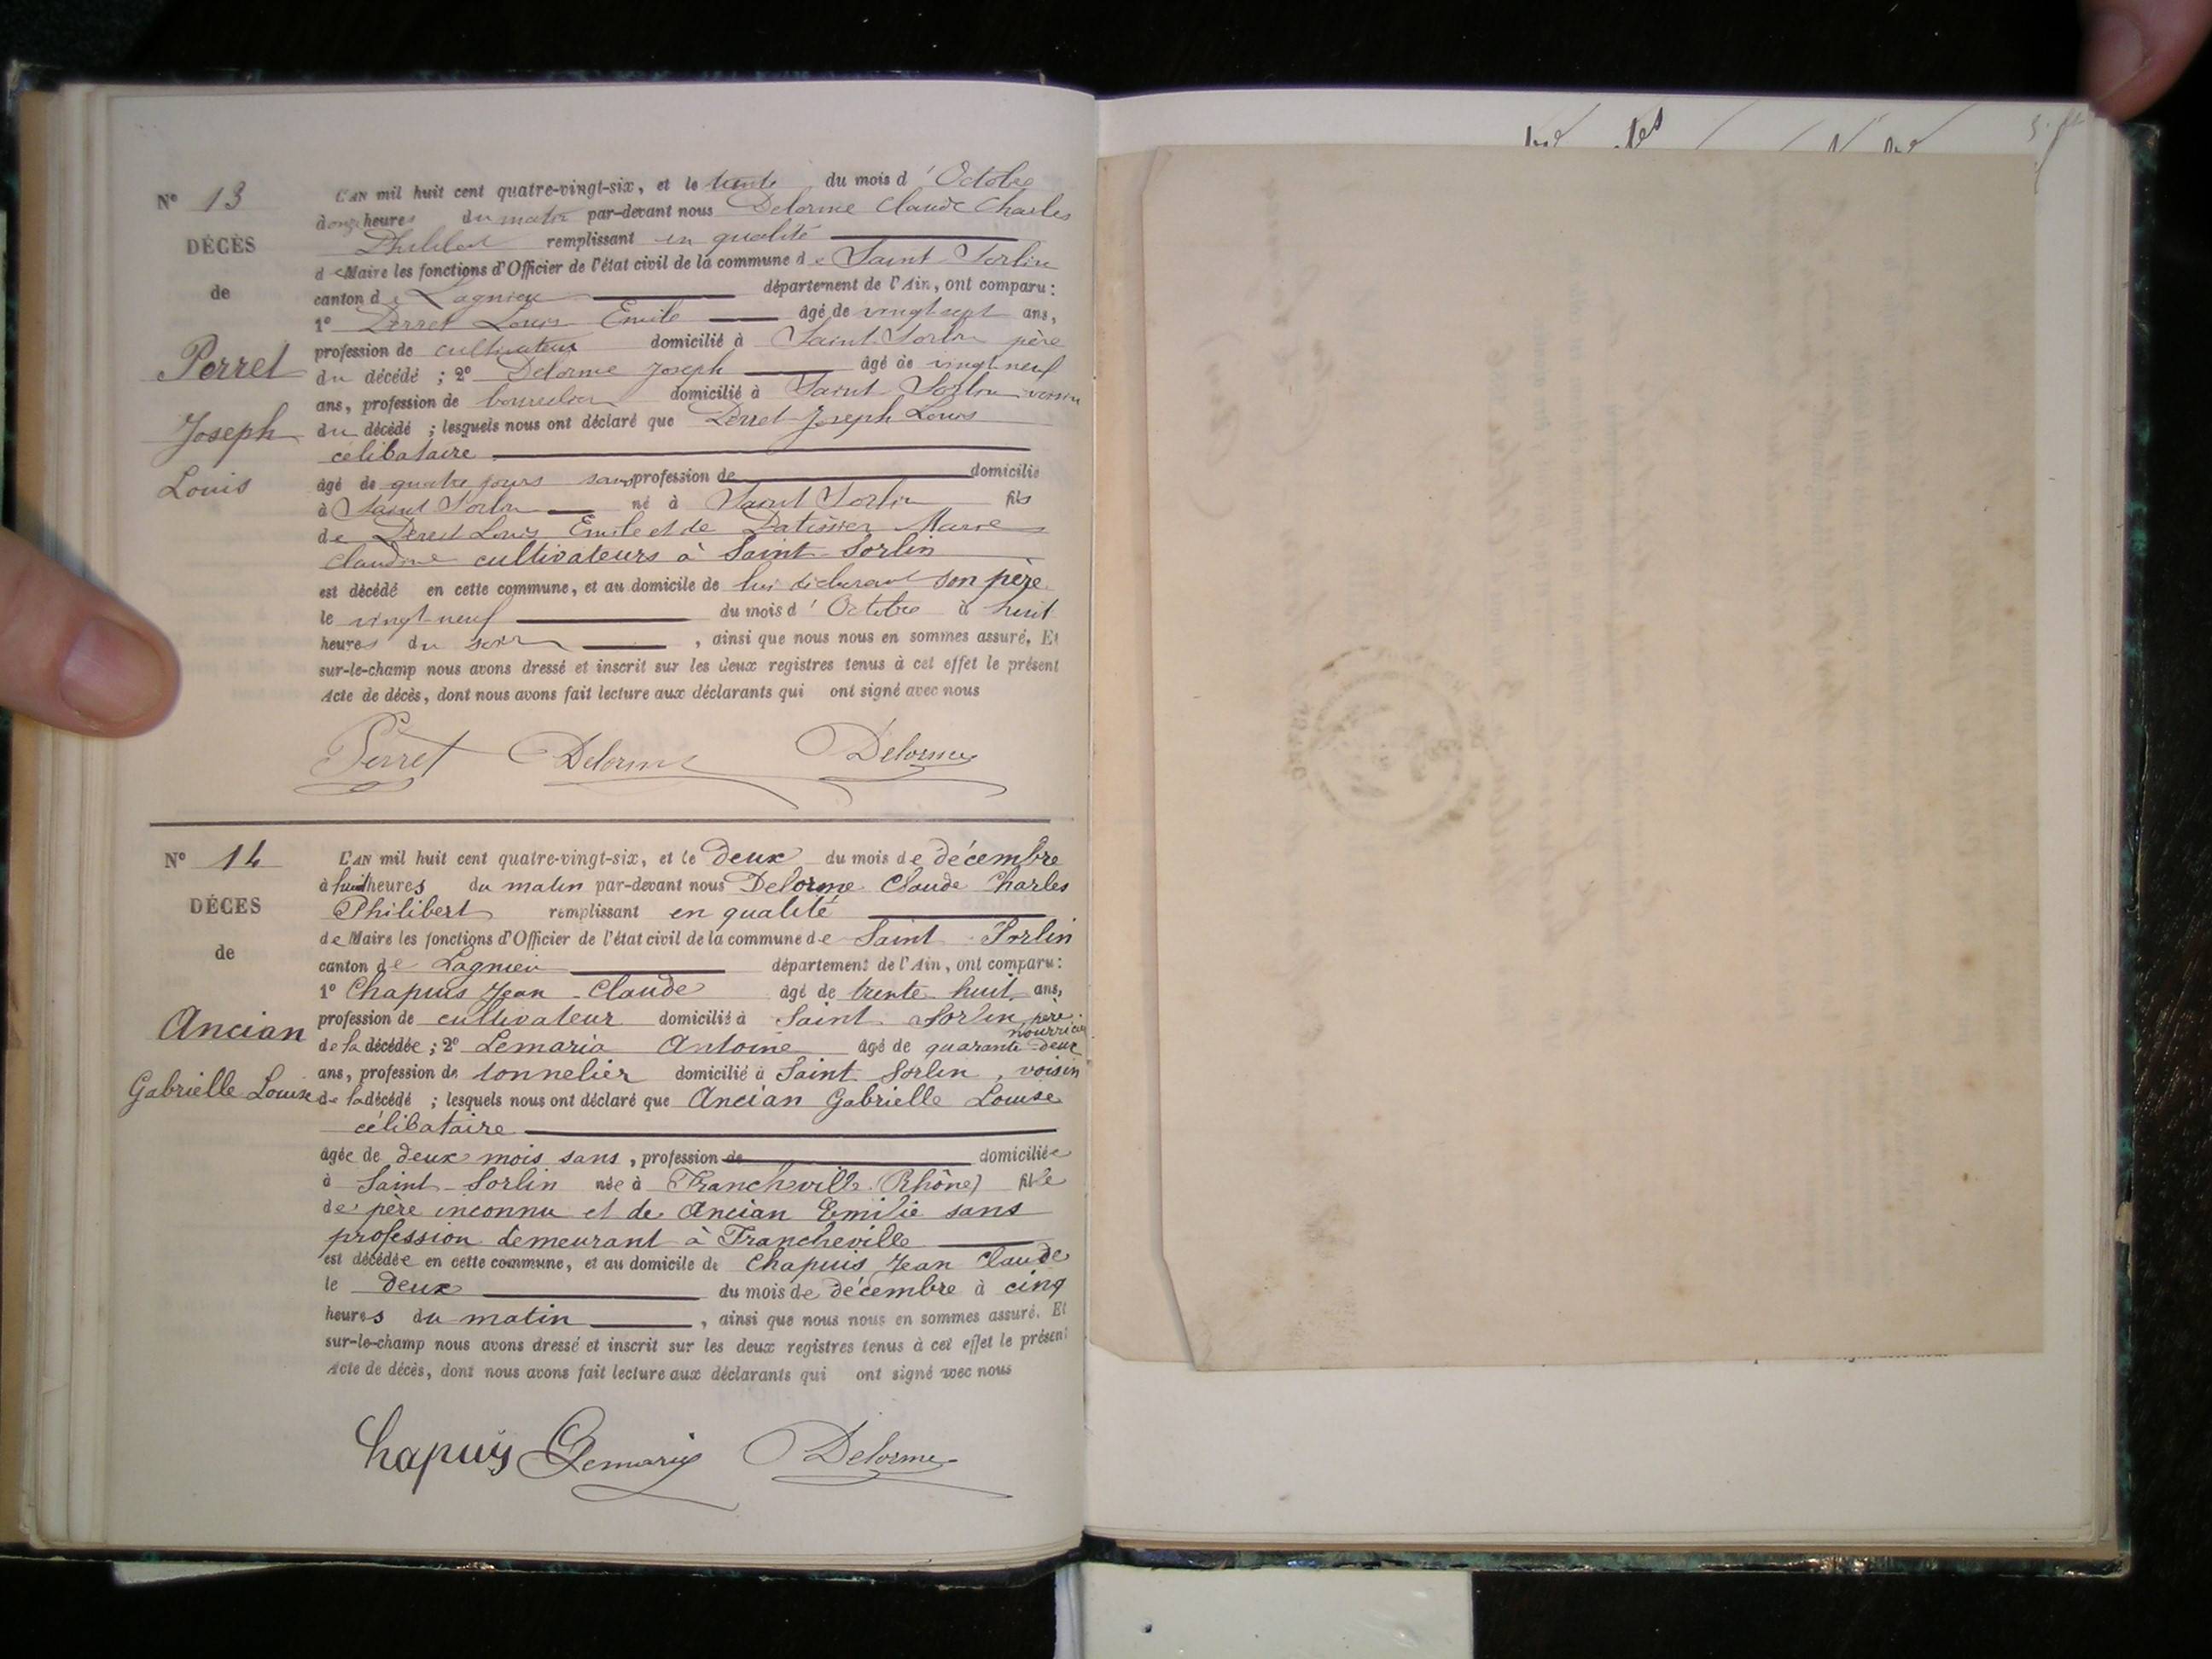 N° 13
DÉCÈS
de
Perret
Joseph
Louis
L'AN mil huit cent quatre-vingt-six, et le trente du mois d'Octobre
à onze heures du matin par-devant nous Delorme Claude Charles
Philibert remplissant en qualité
de Maire les fonctions d'Officier de l'état civil de la commune de Saint Sorlin
canton de Lagnieu département de l'Ain, ont comparu:
1° Perret Louis Emile âgé de vingt sept ans,
profession de cultivateur domicilié à Saint Sorlin père
du décédé ; 2° Delorme Joseph âgé de vingt neuf
ans, profession de bourrelier domicilié à Saint Sorlin voisin
du décédé ; lesquels nous ont déclaré que Perret Joseph Louis
célibataire
âgé de quatre jours sans profession de domicilié
à Saint Sorlin né à Saint Sorlin fils
de Perret Louis Emile et de Patissier Marie
Claudine cultivateurs à Saint Sorlin
est décédé en cette commune, et au domicile de lui déclarant son père
le vingt-neuf du mois d'Octobre à huit
heures du soir, ainsi que nous nous en sommes assuré. Et
sur-le-champ nous avons dressé et inscrit sur les deux registres tenus à cet effet le présent
Acte de décès, dont nous avons fait lecture aux déclarants qui ont signé avec nous
Perret Delorme Delorme
N° 14
DÉCÈS
de
Ancian
Gabrielle Louise
L'AN mil huit cent quatre-vingt-six, et le deux du mois de décembre
à huit heures du matin par-devant nous Delorme Claude Charles
Philibert remplissant en qualité
de Maire les fonctions d'Officier de l'état civil de la commune de Saint Sorlin
canton de Lagnieu département de l'Ain, ont comparu:
1° Chapuis Jean Claude âgé de trente huit ans,
profession de cultivateur domicilié à Saint Sorlin père nourricier
de la décédée ; 2° Lemaria Antoine âgé de quarante-deux
ans, profession de tonnelier domicilié à Saint Sorlin, voisin
de la décédé ; lesquels nous ont déclaré que Ancian Gabrielle Louise
célibataire
âgée de deux mois sans, profession de domiciliée
à Saint-Sorlin née à Francheville (Rhône) fille
de père inconnu et de Ancian Emilie sans
profession demeurant à Francheville
est décédée en cette commune, et au domicile de Chapuis Jean Claude
le deux du mois de décembre à cinq
heures du matin, ainsi que nous nous en sommes assuré. Et
sur-le-champ nous avons dressé et inscrit sur les deux registres tenus à cet effet le présent
Acte de décès, dont nous avons fait lecture aux déclarants qui ont signé avec nous
Chapuis Lemaria Delorme